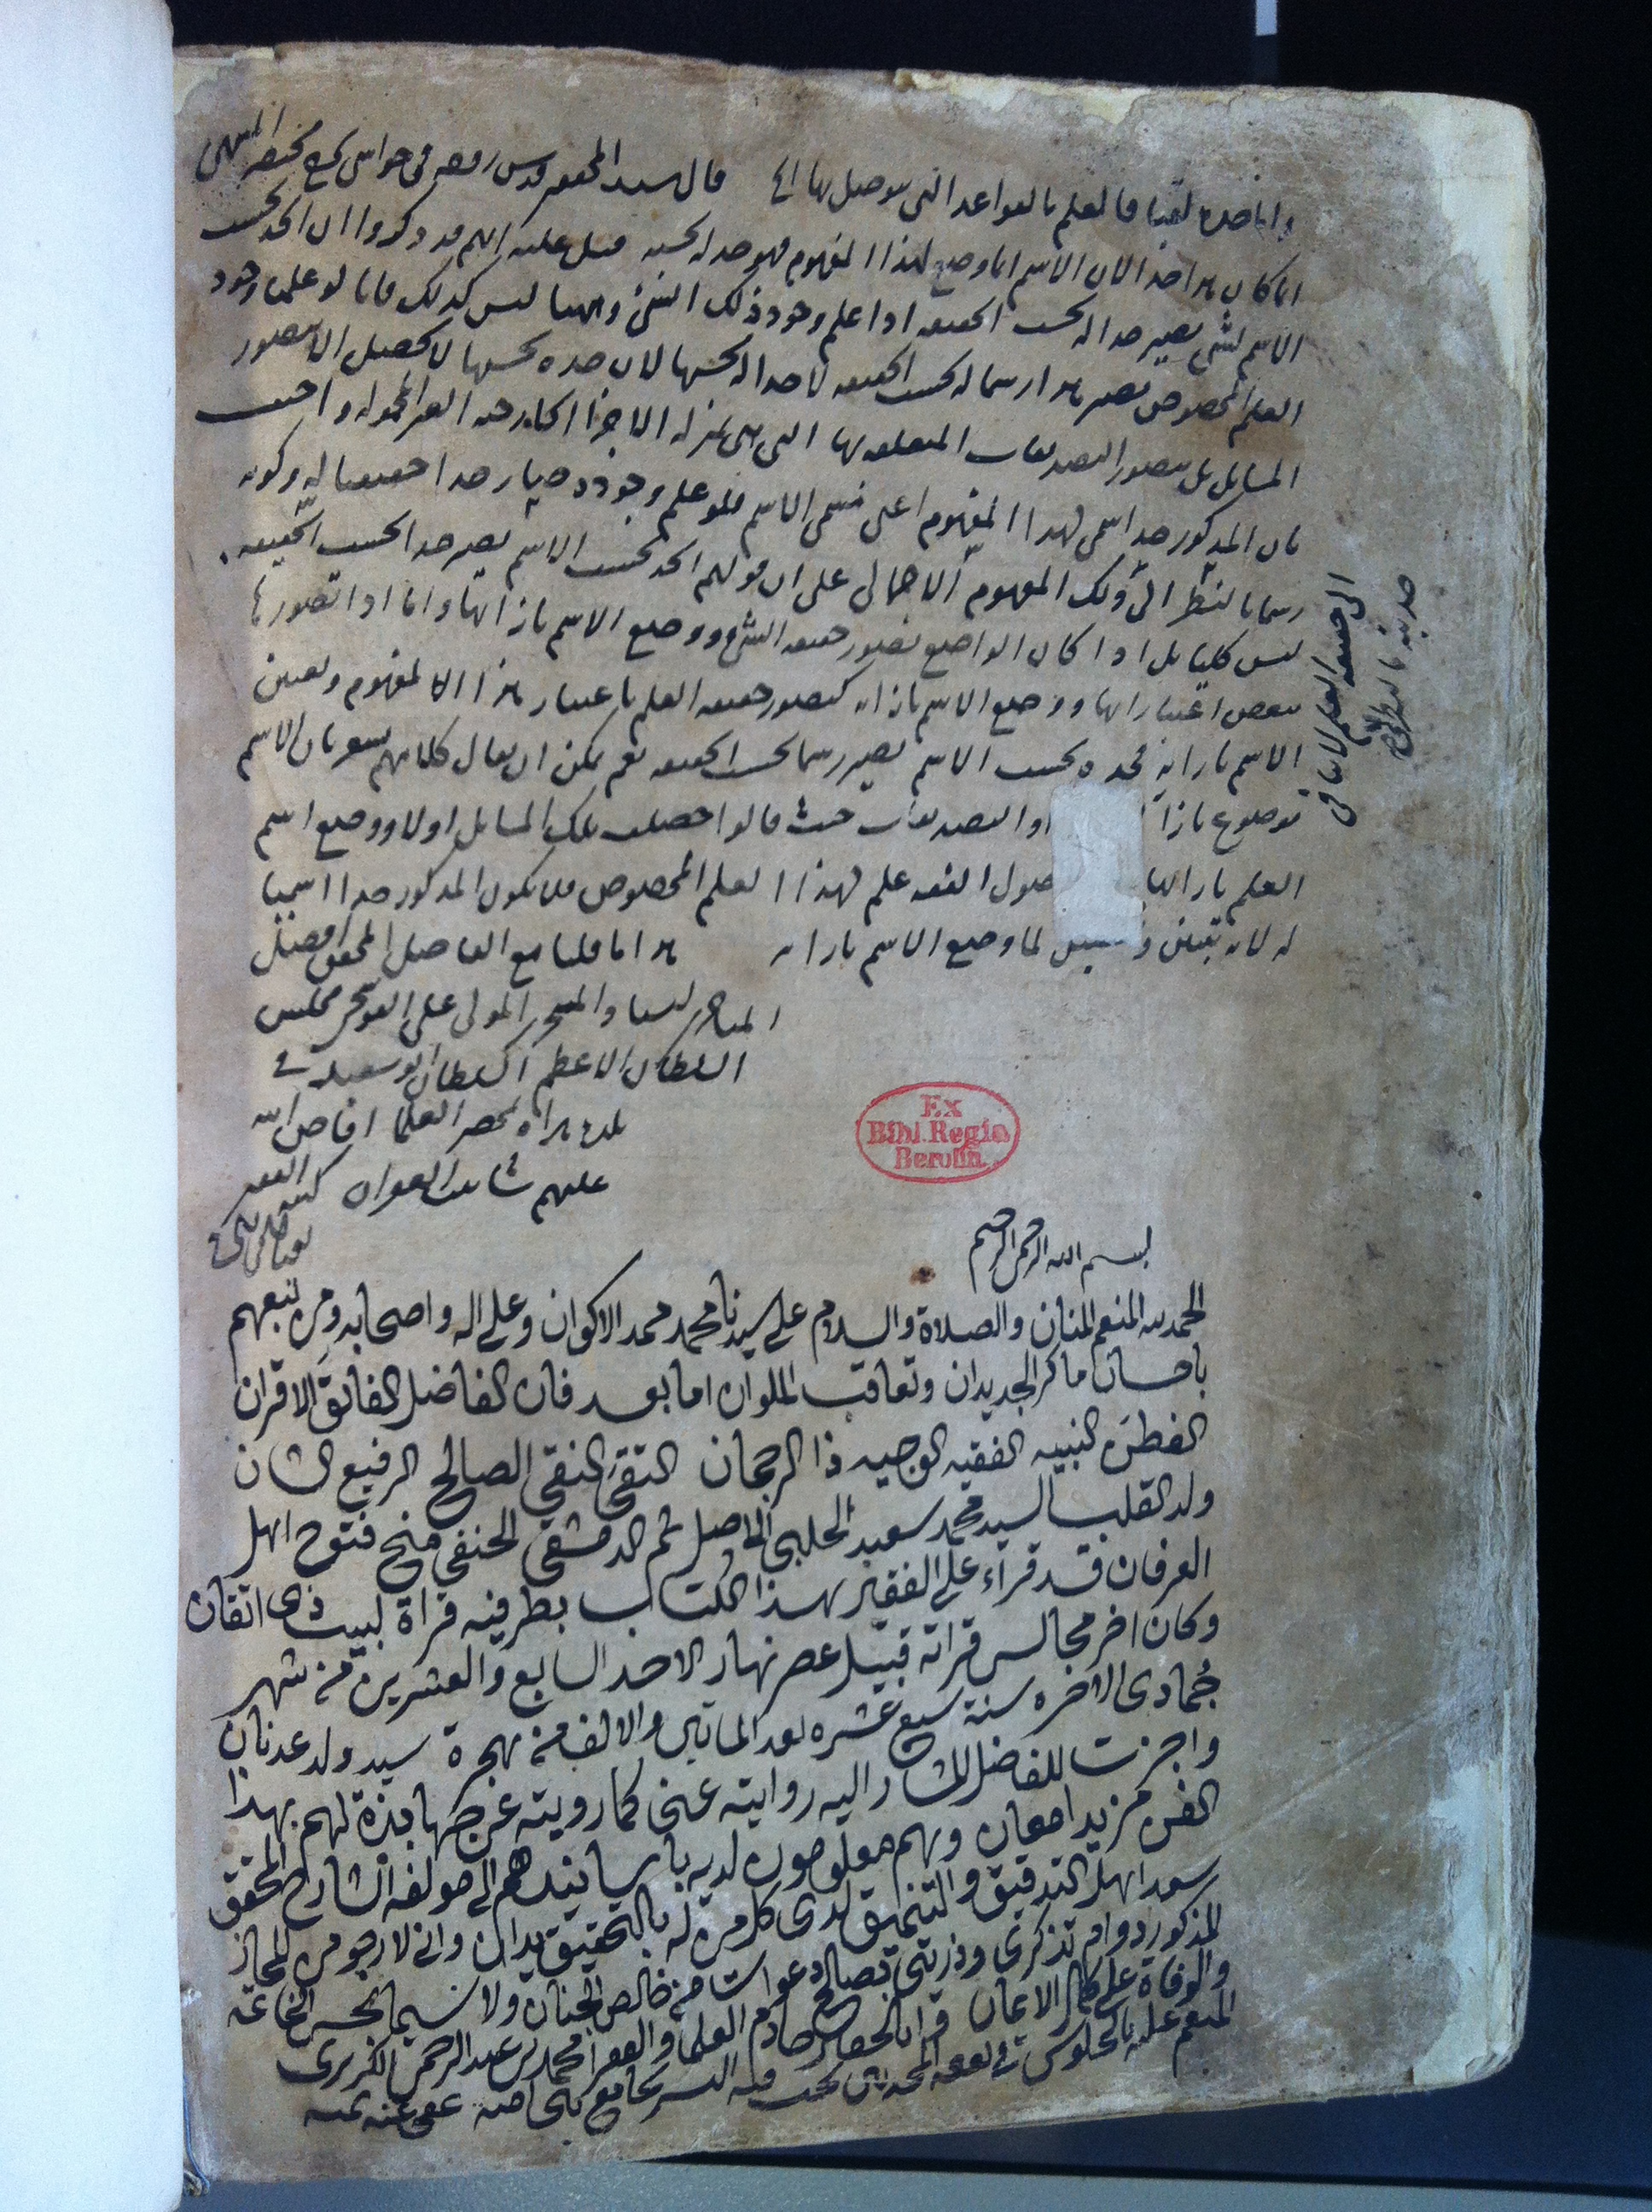 واما حده لقبا فالعلم بالقواعد التى يتوصل بها الخ قال السيد المحقق قدس روحه فى حواشى شرح مختصر المنتهى
انما كان هذا حدا لان الاسم انما وضع لهذا المفهوم فهو حد له بحسبه قيل عليه انهم قد ذكروا ان الحد بحسب
الاسم لشئ يصير حدا له بحسب الحقيقه اذا علم وجود ذلك الشئ وههنا ليس كذلك فانا لو علمنا وجود
العلم المخصوص يصير هذا رسما له بحسب الحقيقه لا حدا له بحسبها لان حده بحسبها لا يحصل الا بتصور
المسايل بل بتصور التصديقات المتعلقه بها التى هى بمنزله الاجزا الخارجيه الغير المحموله واجيب
بان المذكور حد اسمى لهذا المفهوم اعنى مسمى الاسم فلو علم وجوده صار حدا حقيقيا له وكونه
رسما بالنظر الى ذلك المفهوم الاجمالى على ان قولهم الحد بحسب الاسم يصير حدا بحسب الحقيقه
ليس كليا بل اذا كان الواضع تصور حقيقه الشئ ووضع الاسم بازائها واما اذا تصورها
ببعض اعتباراتها ووضع الاسم بازائه كتصور حقيقه العلم باعتبار هذا المفهوم وتعين
الاسم بازائه فحده بحسب الاسم يصير رسما بحسب الحقيقه نعم يمكن ان يقال كلامهم يشعر بان الاسم
موضوع بازا او التصديقات حيث قالوا حصلت تلك المسايل اولا ووضع اسم
العلم بازائها صول الفقه علم لهذا العلم المخصوص فلا يكون المذكور حدا اسميا
له لانه لما وضع الاسم بازائه هذا ما قلنا مع الفاضل المحقق افضل
المولى على القوشجى مجلس
السلطان الاعظم السلطان ابو سعيد فى
بلده هراه بمحضر العلما افاض الله
عليهم كتبه الفقير
الى حقيقه العلم لا ينافى
حديته بالنظر الى
بسم الله الرحمن الرحيم
الحمد لله المنعم المنان والصلاة والسلام على سيدنا محمد محمد الاكوان وعلى اله واصحابه ومن تبعهم
باحسان ما كر الجديدان وتعاقب الملوان اما بعد فان الفاضل الفائق الاقران
الفطن النبيه الفقيه الوجيه ذا الرجحان التقى النقي الصالح الرفيع الشان
ولد القلب السيد محمد سعيد الحلبى الاصل ثم الدمشقى الحنفى منح فتوح اهل
العرفان قد قراء على الفقير هذا الكتاب بطرفيه قراة لبيب ذى اتقان
وكان اخر مجالس قراته قبيل عصر نهار الاحد السابع والعشرين من شهر
جُمادى الاخره سنة سبع عشره بعد الماتين والالف من هجرة سيد ولد عدنان
واجزت للفاضل المشار اليه روايته عنى كما رويته عن جهابذة لهم بهذا
الفن مزيد امعان وهم معلومون لديه باسانيدهم الى مولفه الشارح المحقق
سعد اهل التدقيق والتنميق لدى كل من له بالتحقيق يدان وانى لارجو من المجاز
المذكور دوام تذكرى وذريتى بصالح دعوات من خالص الجنان ولا سيما بحسن الخاتمه
والوفاة على كمال الايمان خادم العلما والفقرا محمد بن عبد الرحمن الكزبرى
المنعم عليه بالجلوس تحت قبه النسر بجامع بنى اميه عفى عنه بمنه
Ex
Bibl. Regia
Berolin.